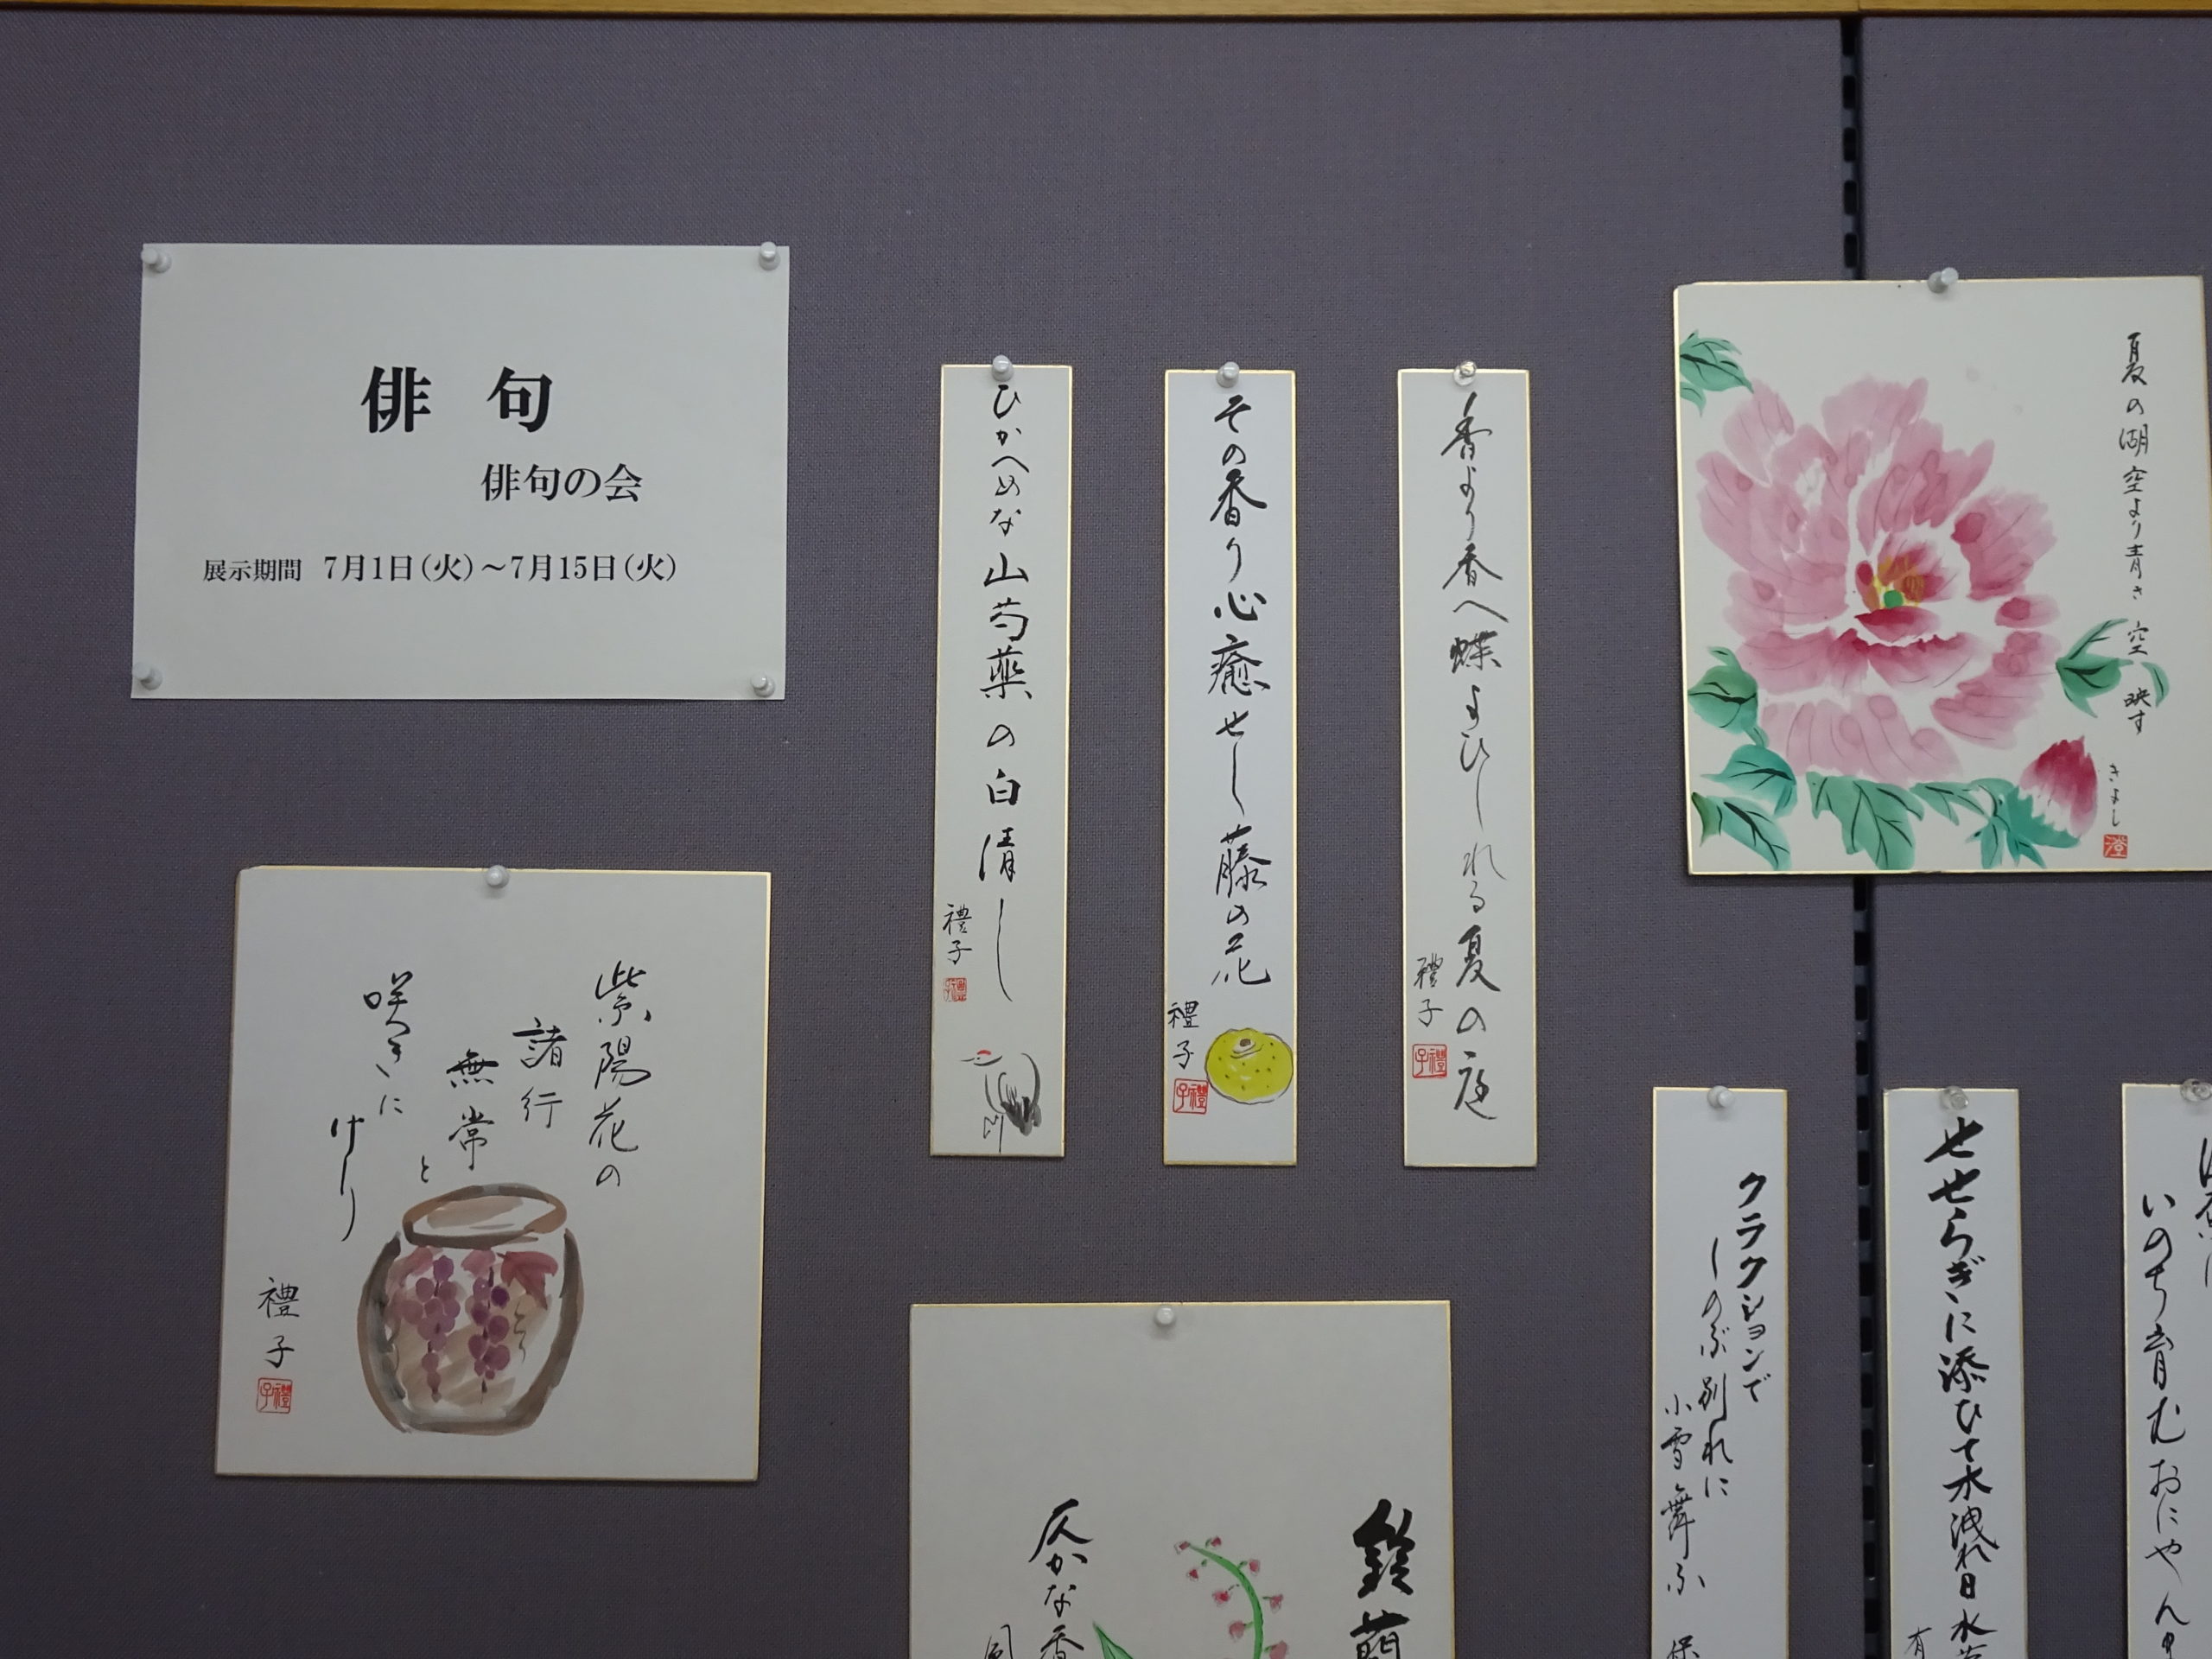 俳句
俳句の会
展示期間 7月1日(火)～7月15日(火)
ひかへめな山芍薬の白清し
禮子
その香り心癒せし藤の花
禮子
禮子
香より香へ蝶よひしれる夏の庭
禮子
禮子
夏の湖空より青き空映す
きよし
澄
紫陽花の
諸行
無常と
咲きに
けり
禮子
禮子
鈴蘭
仄かな香
風
クラクションで
しのぶ別れに
小雪舞ふ
せせらぎに添ひて水洩れ日水
有
いのち育む おにやん